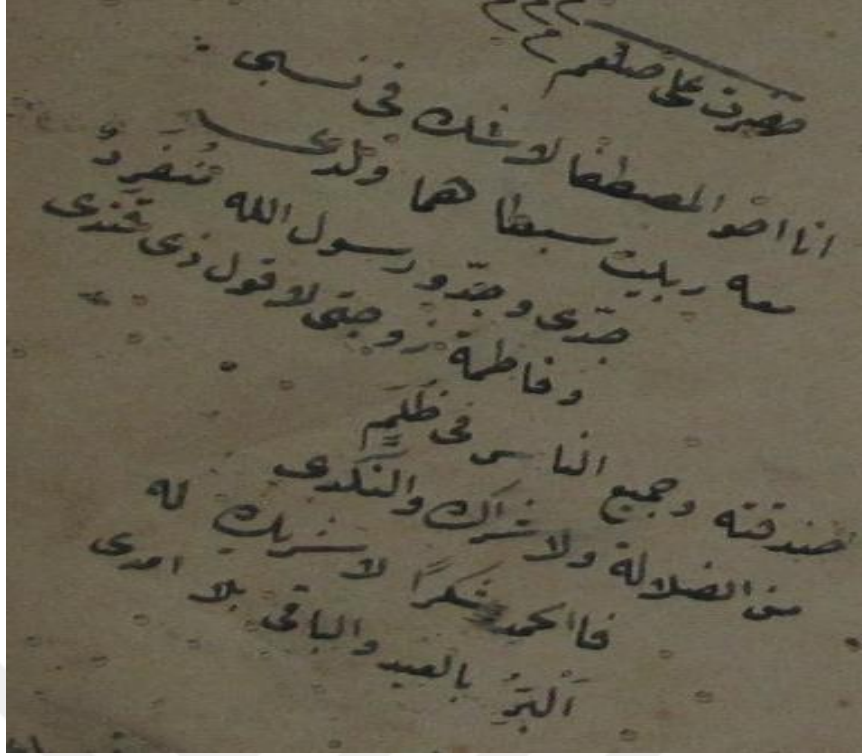 حضرت على صلعم
انا اخو المصطفا لا شك فى نسبى :
معه ربيت سبطا هما ولدى
جدّى وجدّو رسول الله مُنفرِدٌ
وفاطمة زوجتى لا قول ذى فندى
صدقته وجميع الناس فى ظُلَمٍ
من الضلالة ولاشراك والنكدى
فاالحمد شكرًا لا شريك له
اَلْبَرُّ بالعبد والباقى بلا امدى